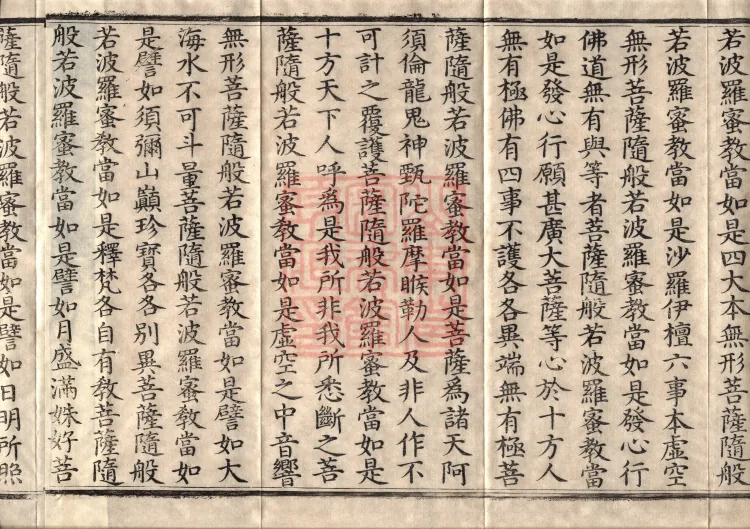 若波羅蜜教當如是四大本無形菩薩隨般
若波羅蜜教當如是沙羅伊檀六事本虛空
無形菩薩隨般若波羅蜜教當如是發心行
佛道無有與等者菩薩隨般若波羅蜜教當
如是發心行願甚廣大菩薩等心於十方人
無有極佛有四事不護各各異端無有極菩
薩隨般若波羅蜜教當如是菩薩為諸天阿
須倫龍鬼神甄陀羅摩睺勒人及非人作不
可計之覆護菩薩隨般若波羅蜜教當如是
十方天下人呼為是我所非我所悉斷之菩
薩隨般若波羅蜜教當如是虛空之中音響
無形菩薩隨般若波羅蜜教當如是譬如大
海水不可斗量菩薩隨般若波羅蜜教當如
是譬如須彌山巔珍寶各各別異菩薩隨般
若波羅蜜教當如是釋梵各自有教菩薩隨
般若波羅蜜教當如是譬如月盛滿姝好菩
薩隨般若波羅蜜教當如是譬如日明所照